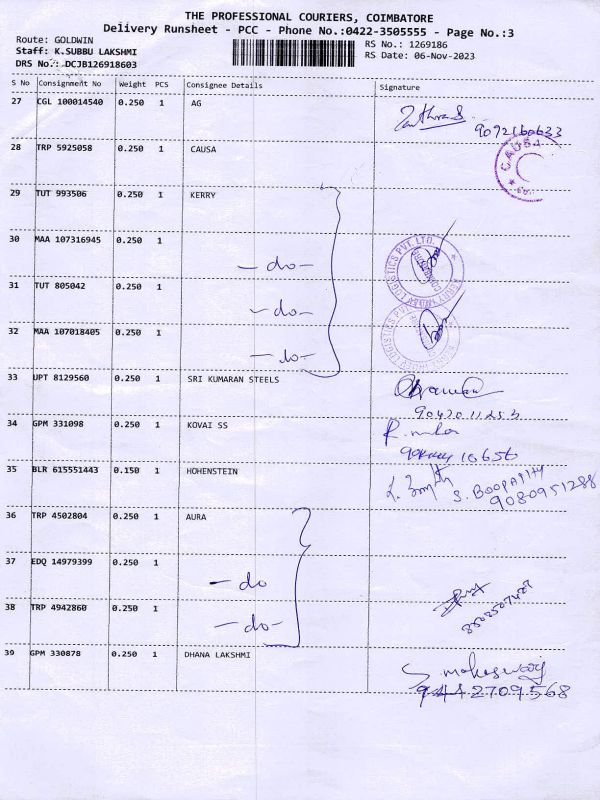 THE PROFESSIONAL COURIERS, COIMBATORE
Delivery Runsheet - PCC - Phone No.:0422-3505555 - Page No.:3
Route: GOLDWIN
RS No.: 1269186
Staff: K.SUBBU LAKSHMI
RS Date: 06-Nov-2023
DRS No.: DCJB126918603
S No Consignment No Weight PCS Consignee Details Signature
27 CGL 100014540 0.250 1 AG
9072160633
28 TRP 5925058 0.250 1 CAUSA
CAUSA
29 TUT 993506 0.250 1 KERRY
30 MAA 107316945 0.250 1
- do -
LOGISTICS PVT. LTD.
31 TUT 805042 0.250 1
- do -
32 MAA 107018405 0.250 1
- do -
33 UPT 8129560 0.250 1 SRI KUMARAN STEELS
9042011253
34 GPM 331098 0.250 1 KOVAI SS
35 BLR 615551443 0.150 1 HOHENSTEIN
S. BOOPATHY
9080951288
36 TRP 4502804 0.250 1 AURA
37 EDQ 14979399 0.250 1
- do
38 TRP 4942860 0.250 1
- do -
39 GPM 330878 0.250 1 DHANA LAKSHMI
9442709568